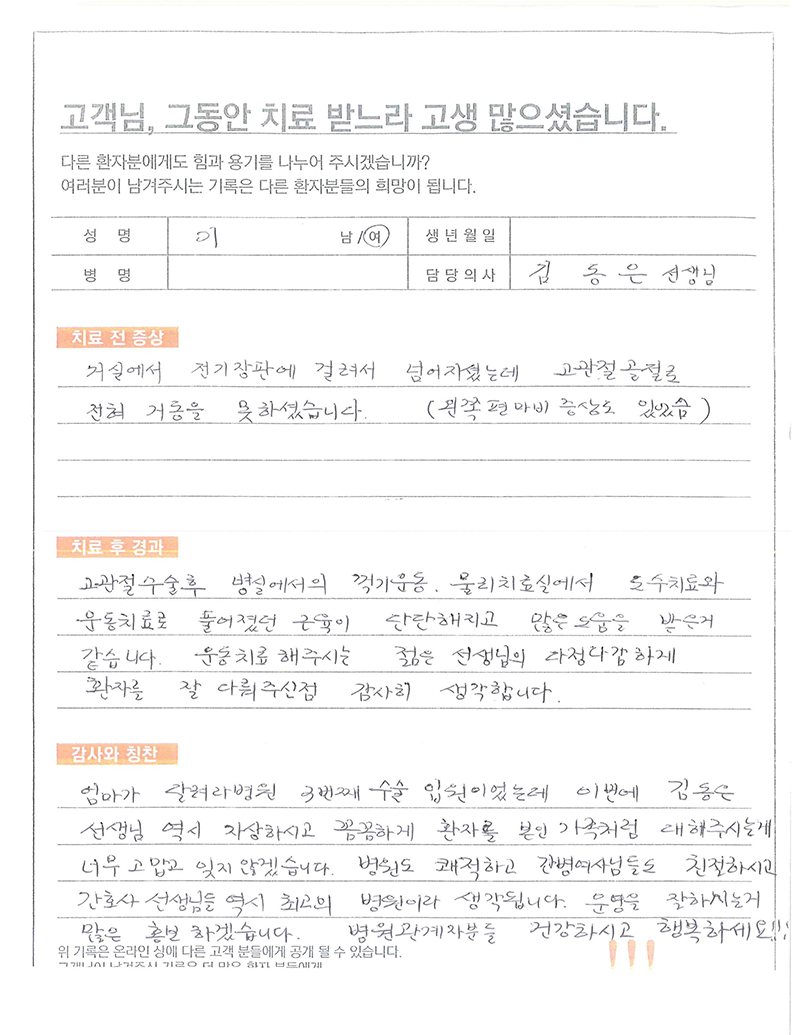 고객님, 그동안 치료 받느라 고생 많으셨습니다.
다른 환자분에게도 힘과 용기를 나누어 주시겠습니까?
여러분이 남겨주시는 기록은 다른 환자분들의 희망이 됩니다.
성 명 이 남/여 생년월일
병 명 담당의사 김 동 은 선생님
치료 전 증상
거실에서 전기장판에 걸려서 넘어지셨는데 고관절골절로
전혀 거동을 못하셨습니다. (왼쪽편마비 증상도 있었음)
치료 후 경과
고관절수술후 병실에서의 꺽기운동. 물리치료실에서 도수치료와
운동치료로 풀어졌던 근육이 단단해지고 많은도움을 받은거
같습니다. 운동치료해주시는 젊은 선생님의 다정다감하게
환자를 잘 다뤄주신점 감사히 생각합니다.
감사와 칭찬
엄마가 달려라병원 3번째 수술 입원이었는데 이번에 김동은
선생님 역시 자상하시고 꼼꼼하게 환자를 본인가족처럼 대해주시는게
너무 고맙고 잊지 않겠습니다. 병원도 쾌적하고 간병여사님들도 친절하시고
간호사 선생님들 역시 최고의 병원이라 생각됩니다. 운영을 잘하시는거
많은 홍보 하겠습니다. 병원관계자분들 건강하시고 행복하세요!!!
위 기록은 온라인 상에 다른 고객 분들에게 공개 될 수 있습니다.